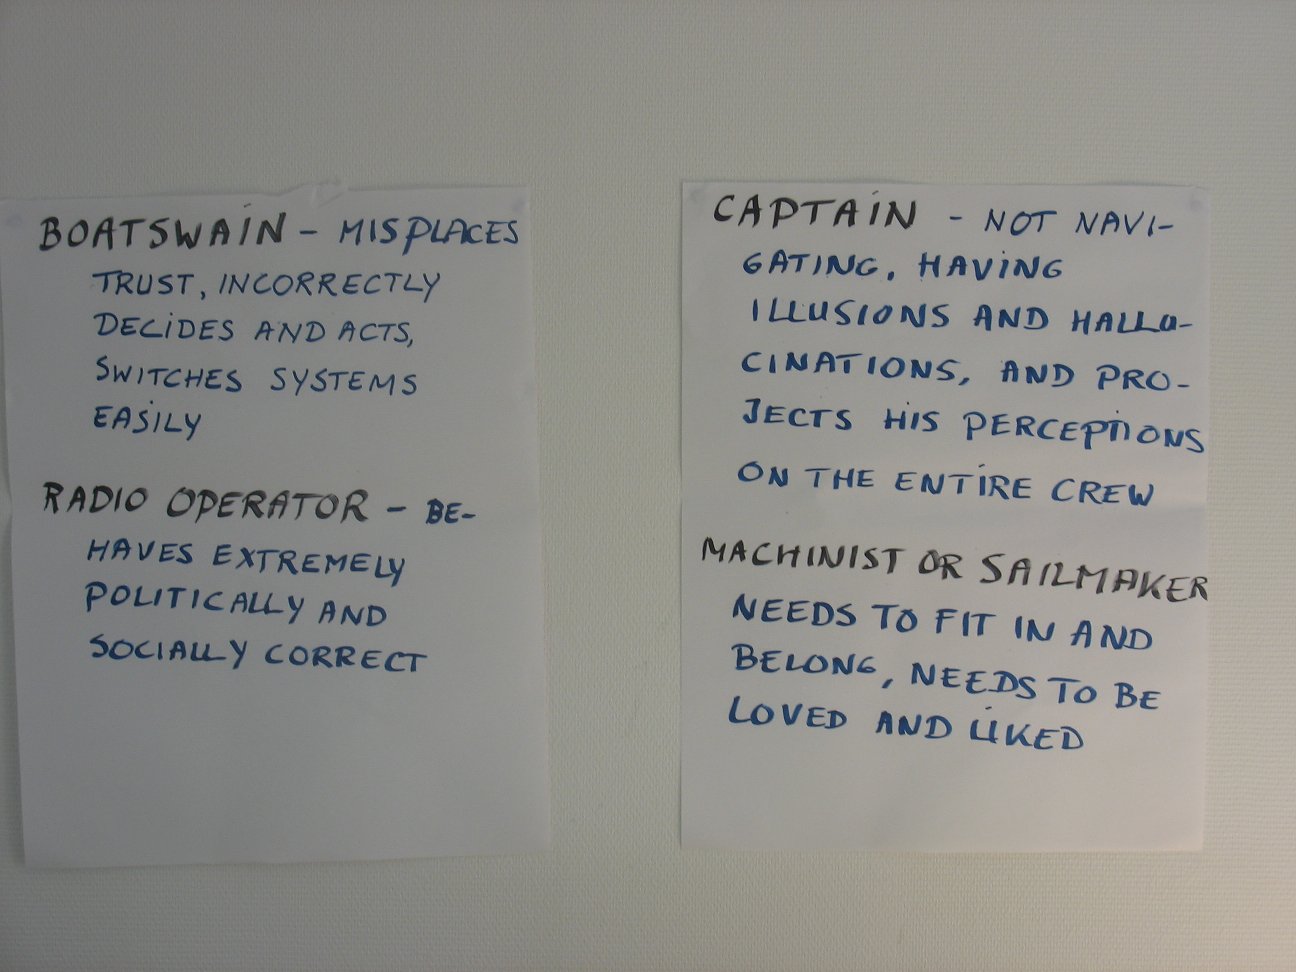 BOATSWAIN - MISPLACES
TRUST, INCORRECTLY
DECIDES AND ACTS,
SWITCHES SYSTEMS
EASILY
RADIO OPERATOR - BE-
HAVES EXTREMELY
POLITICALLY AND
SOCIALLY CORRECT
CAPTAIN - NOT NAVI-
GATING, HAVING
ILLUSIONS AND HALLU-
CINATIONS, AND PRO-
JECTS HIS PERCEPTIONS
ON THE ENTIRE CREW
MACHINIST OR SAILMAKER
NEEDS TO FIT IN AND
BELONG, NEEDS TO BE
LOVED AND LIKED